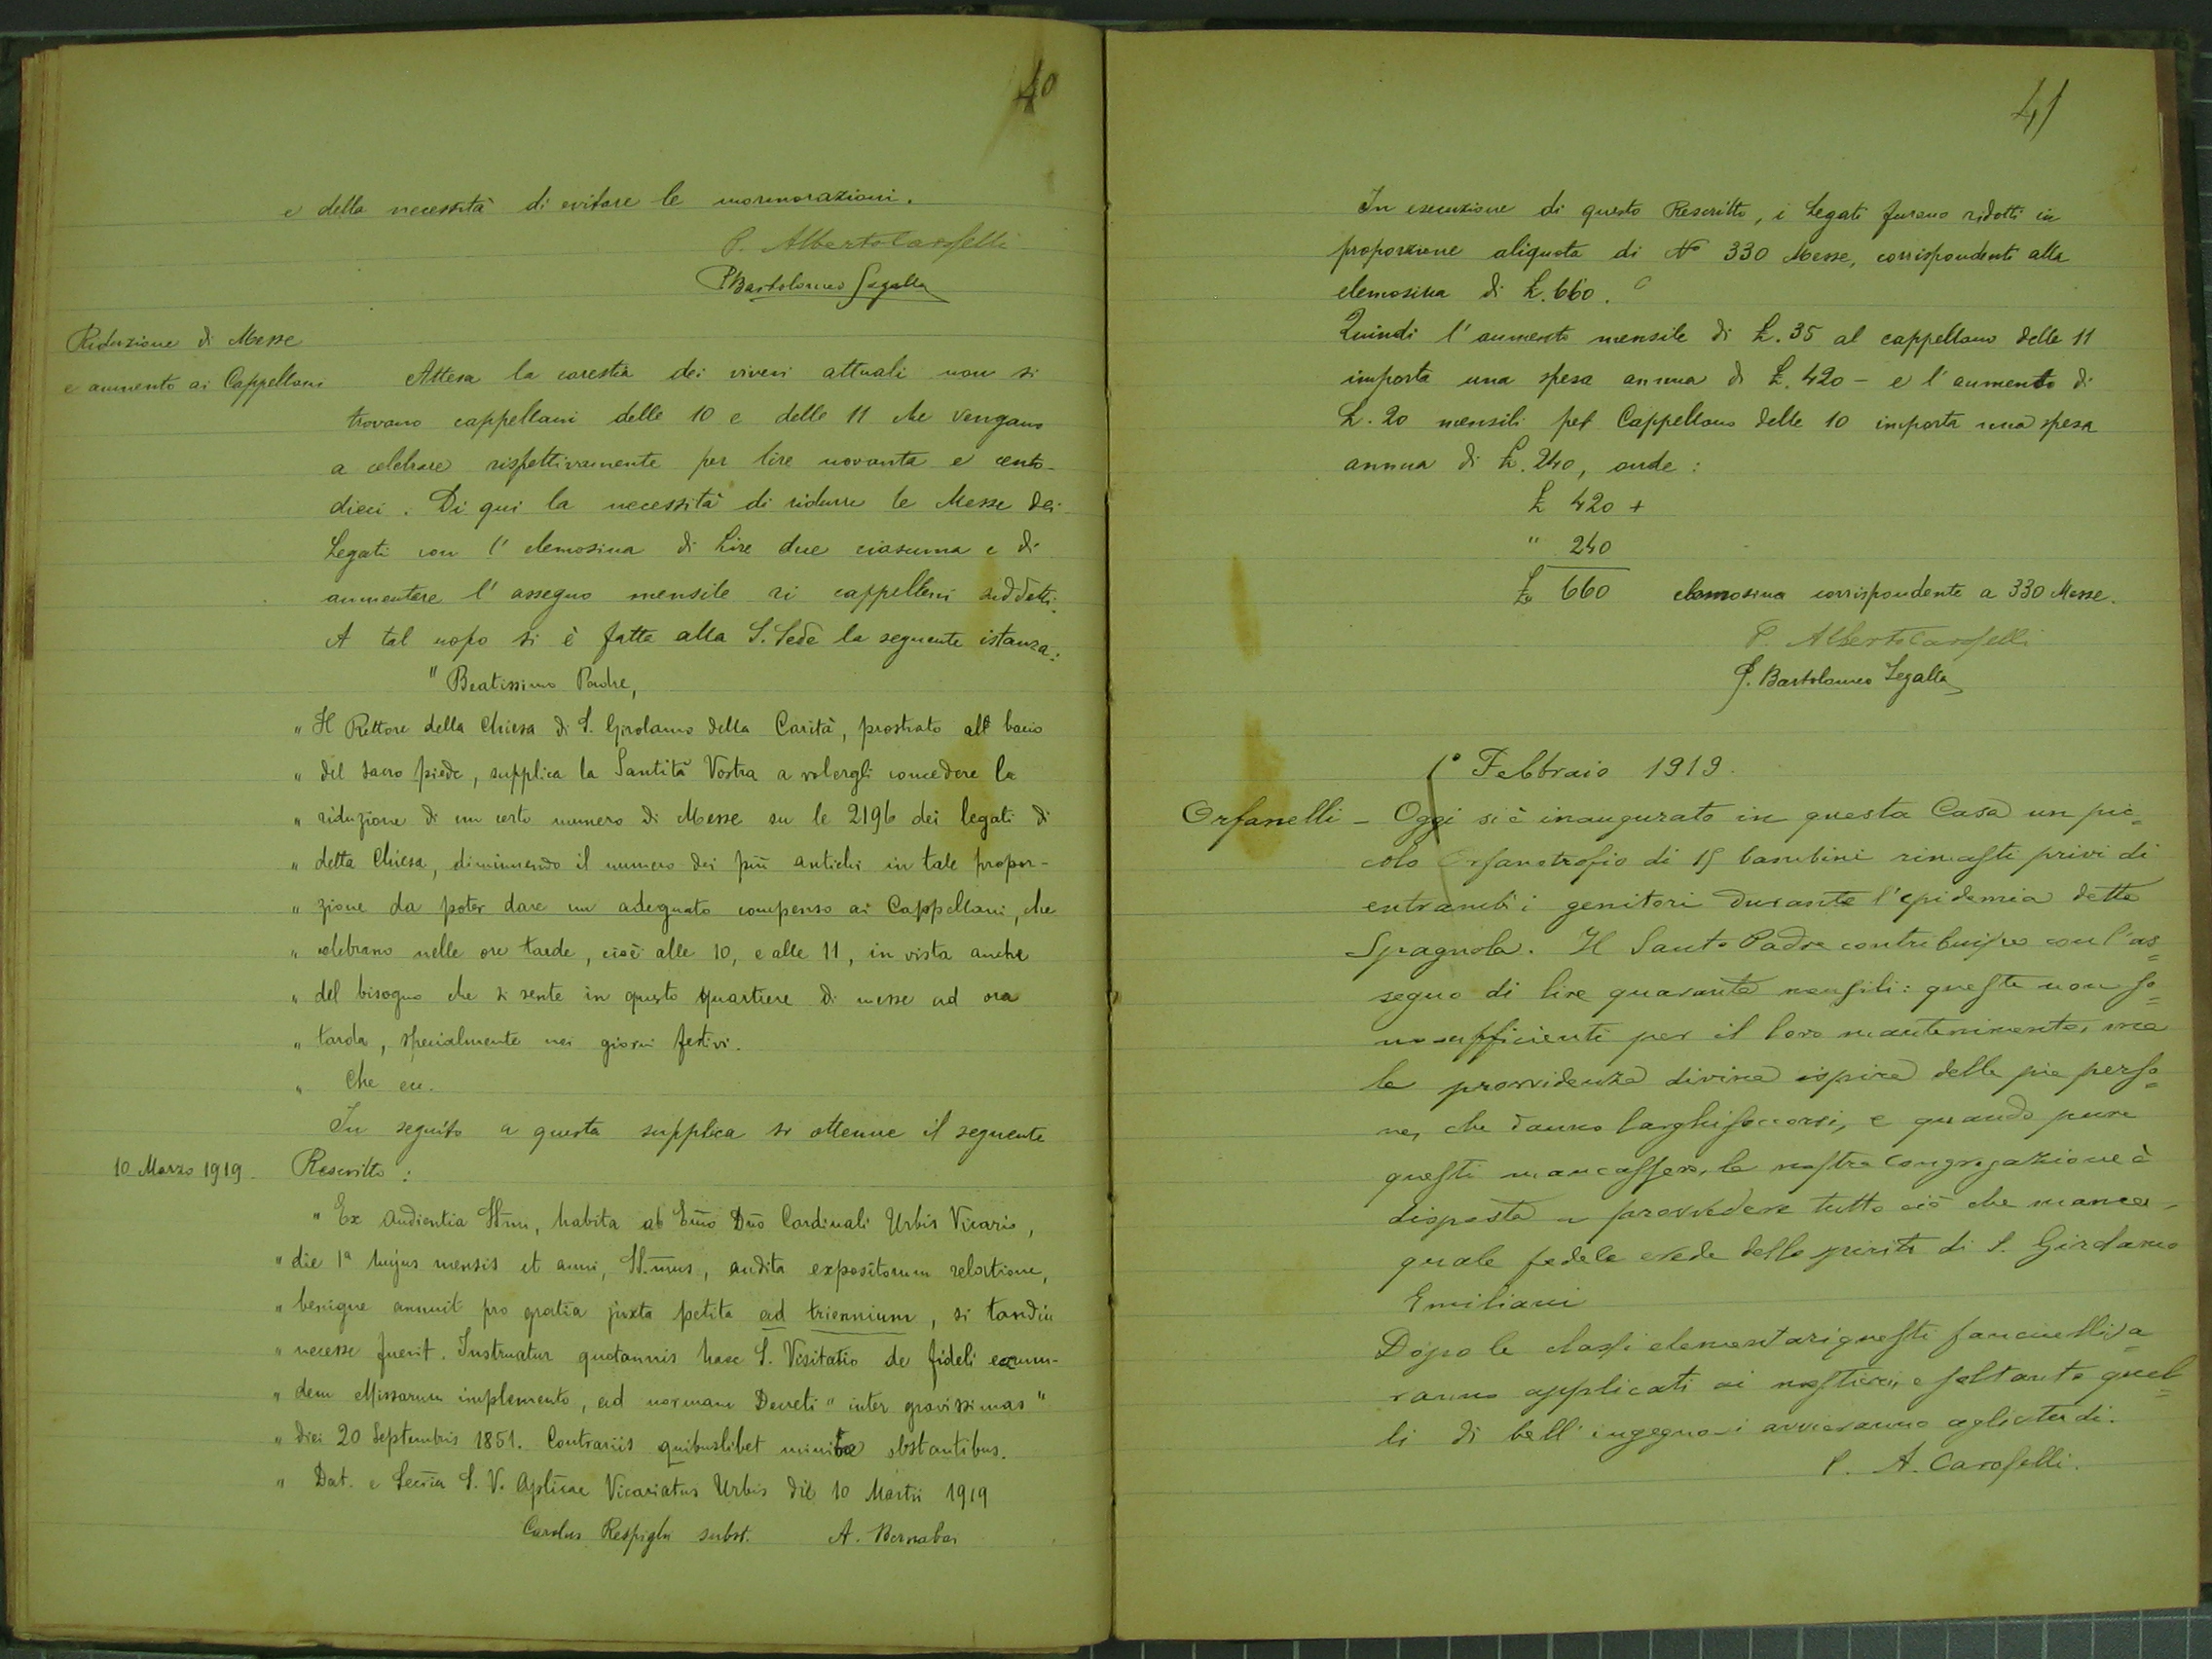 40
e della necessità di evitare le mormorazioni.
P. Alberto Caroselli
P. Bartolomeo Segalla
Riduzione di Messe
e aumento ai Cappellani
Attesa la carestia dei viveri attuali non si
trovano cappellani delle 10 e delle 11 che vengano
a celebrare rispettivamente per lire novanta e cento-
dieci. Di qui la necessità di ridurre le Messe dei
Legati con l'elemosina di Lire due ciascuna e di
aumentare l'assegno mensile ai cappellani suddetti.
A tal uopo si è fatta alla S. Sede la seguente istanza:
" Beatissimo Padre,
" Il Rettore della Chiesa di S. Girolamo della Carità, prostrato al bacio
" del sacro piede, supplica la Santità Vostra a volergli concedere la
" riduzione di un certo numero di Messe su le 2196 dei legati di
" detta Chiesa, diminuendo il numero dei più antichi in tale propor-
" zione da poter dare un adeguato compenso ai Cappellani, che
" celebrano nelle ore tarde, cioè alle 10, e alle 11, in vista anche
" del bisogno che si sente in questo quartiere di messe ad ora
" tarda, specialmente nei giorni festivi.
" Che ecc.
In seguito a questa supplica si ottenne il seguente
10 Marzo 1919. Rescritto:
" Ex Audientia SSmi, habita ab Emo Dno Cardinali Urbis Vicario,
" die 1a hujus mensis et anni, SS.mus, audita expositorum relatione,
" benigne annuit pro gratia juxta petita ad triennium, si tandiu
" necesse fuerit. Instruatur quotannis haec S. Visitatio de fideli earum-
" dem Missarum implemento, ad normam Decreti " inter gravissimas "
" diei 20 Septembris 1851. Contrariis quibuslibet minime obstantibus.
" Dat. e Secria S. V. Aplicae Vicariatus Urbis die 10 Martii 1919
Carolus Respighi subst. A. Bernabei
41
In esecuzione di questo Rescritto, i Legati furono ridotti in
proporzione aliquota di No 330 Messe, corrispondenti alla
elemosina di £. 660.
Quindi l'aumento mensile di £. 35 al cappellano delle 11
importa una spesa annua di £. 420 - e l'aumento di
£. 20 mensili pel Cappellano delle 10 importa una spesa
annua di £. 240, onde:
£ 420 +
" 240
£ 660 elemosina corrispondente a 330 Messe.
P. Alberto Caroselli
P. Bartolomeo Segalla
1° Febbraio 1919.
Orfanelli - Oggi si è inaugurato in questa Casa un pic=
colo Orfanotrofio di 15 bambini rimasti privi di
entrambi i genitori durante l'epidemia detta
Spagnola. Il Santo Padre contribuisce con l'as=
segno di lire quaranta mensili: queste non so=
no sufficienti per il loro mantenimento, ma
la provvidenza divina ispira delle pie perso=
ne, che danno larghi soccorsi, e quando pure
questi mancassero, la nostra Congregazione è
disposta a provvedere tutto ciò che manca,
quale fedele erede dello spirito di S. Girolamo
Emiliani
Dopo le classi elementari questi fanciulli sa=
ranno applicati ai mestieri, e soltanto quel=
li di bell'ingegno si avvieranno agli studi.
P. A. Caroselli.